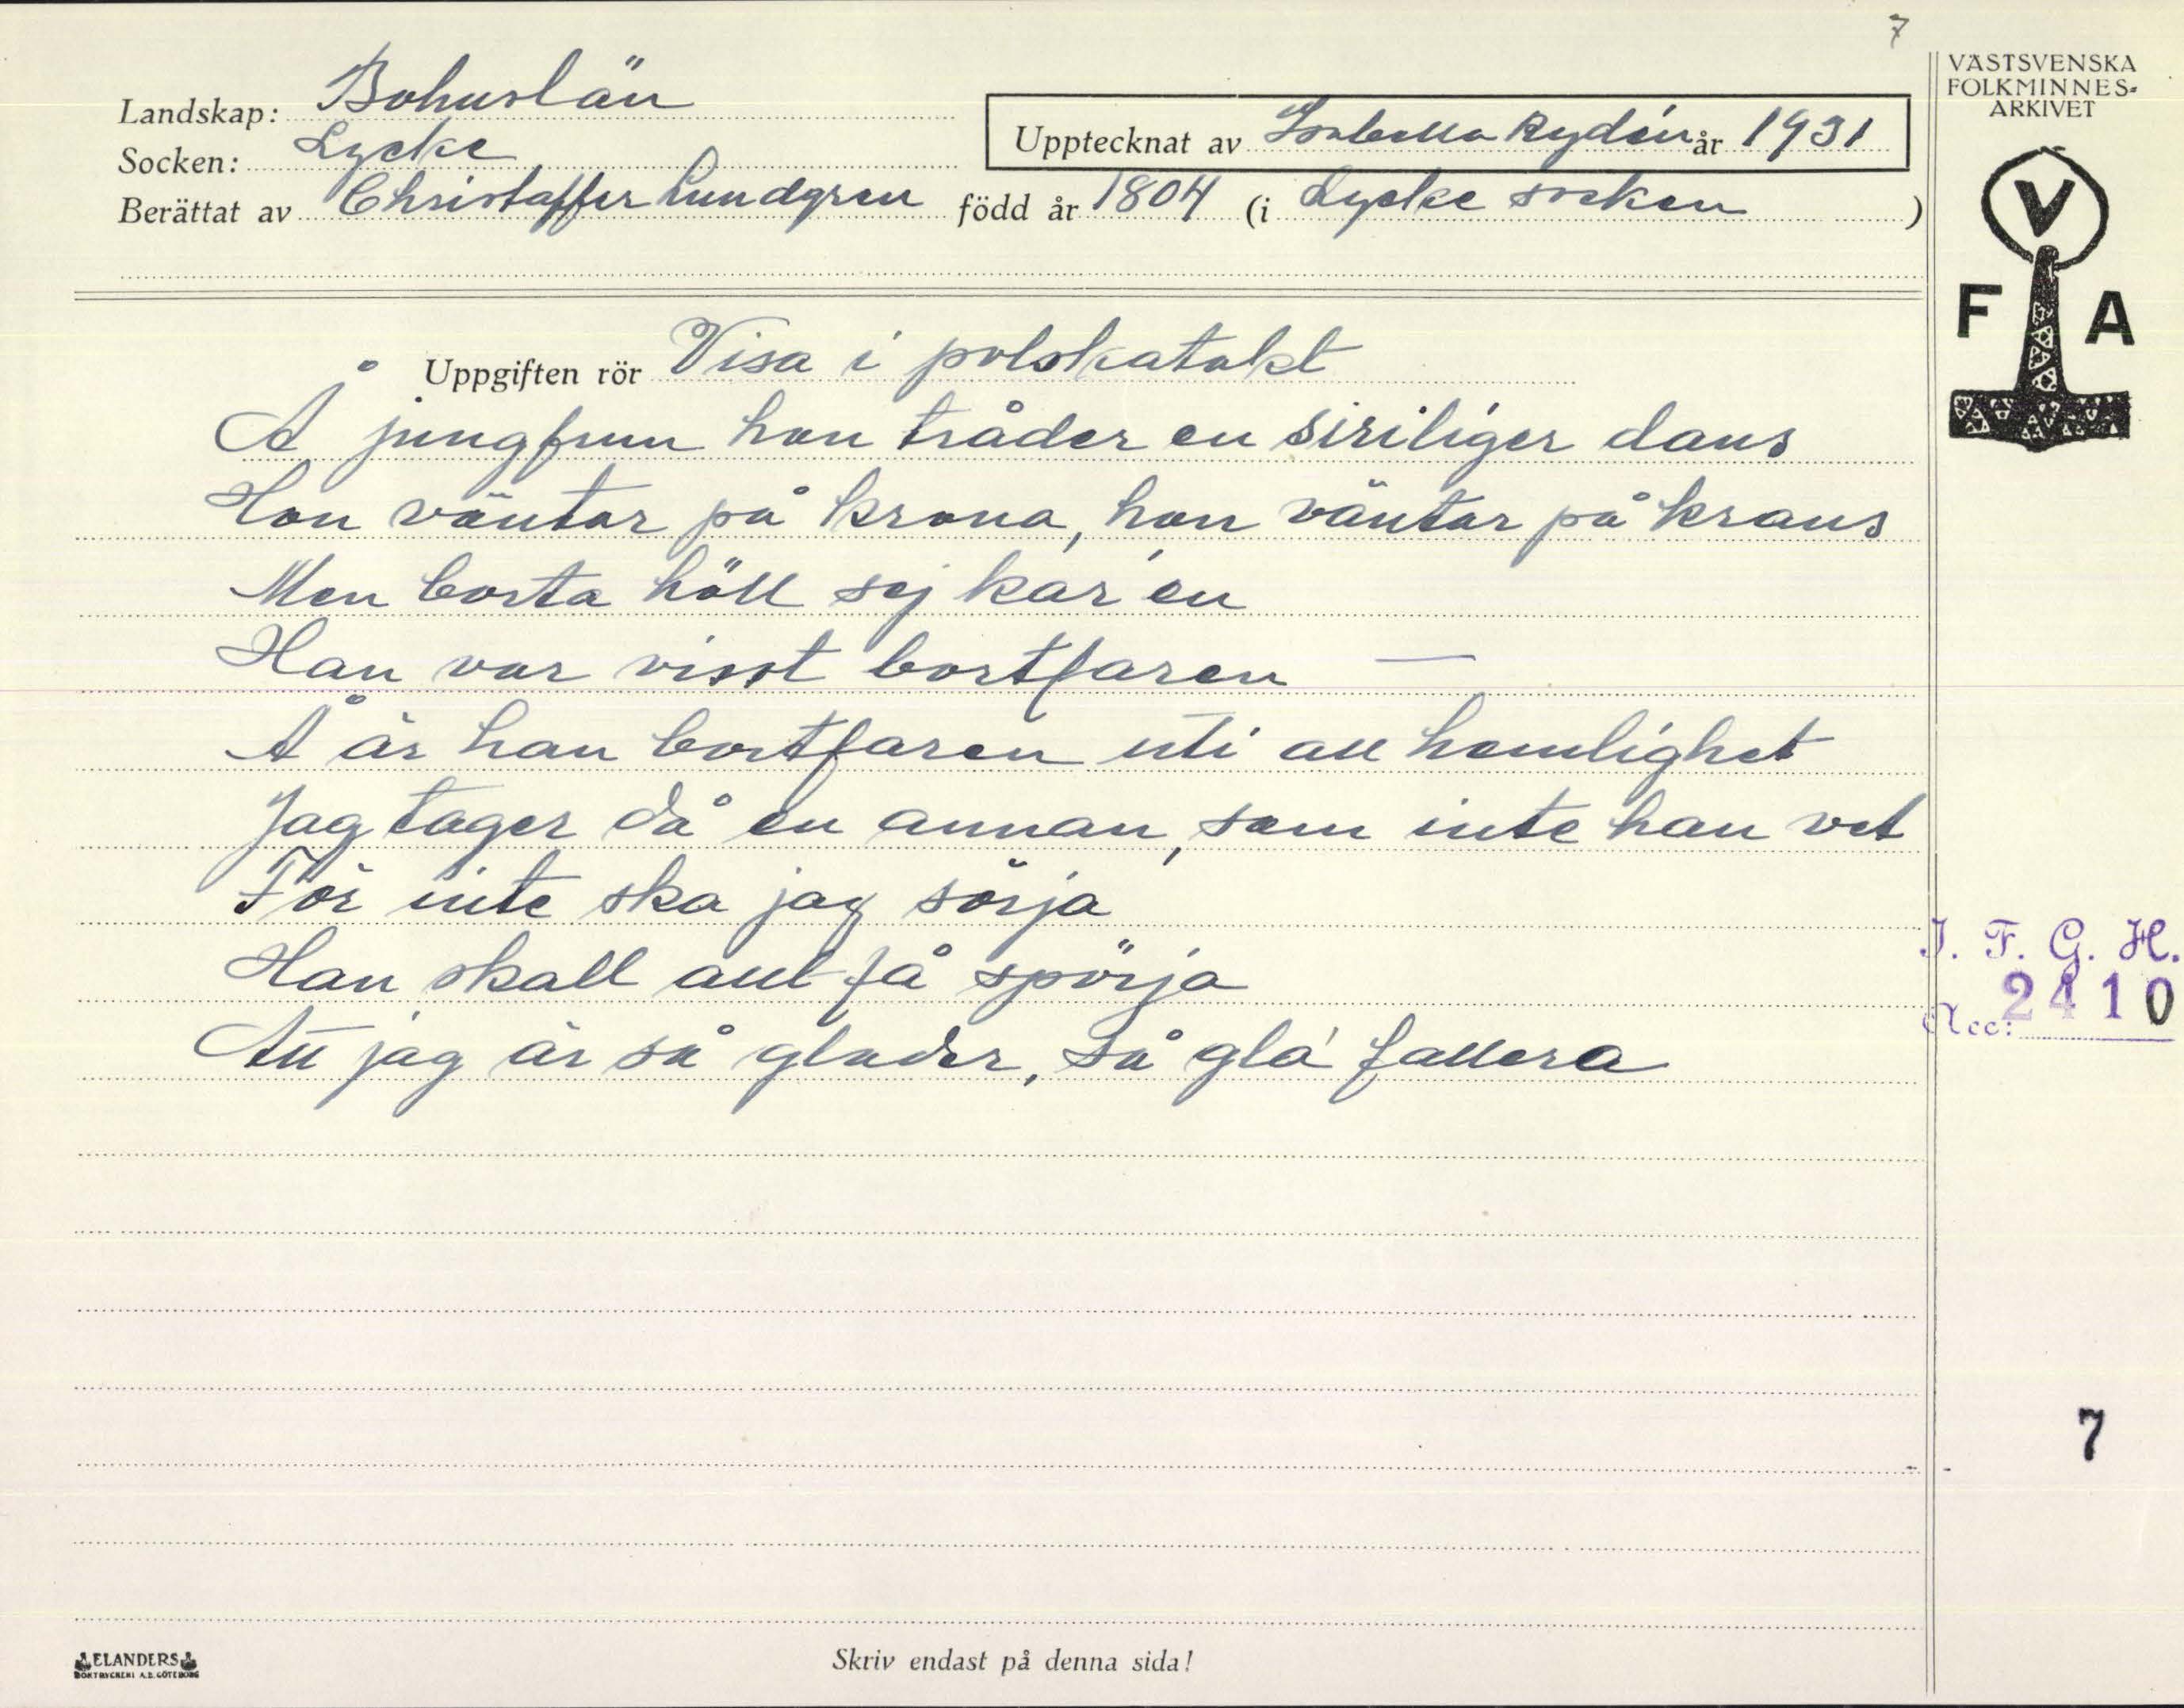 7
VÄSTSVENSKA
FOLKMINNES-
ARKIVET
Landskap: Bohuslän
Socken: Lycke
Upptecknat av Isabella Rydén år 1931
Berättat av Christoffer Lundgren född år 1804 (i Lycke socken )
V
F A
Uppgiften rör Visa i polskatakt
Å jungfrun hon tråder en siriliger dans
Hon väntar på krona, hon väntar på krans
Men borta höll sej kar'en
Han var visst bortfaren —
Å är han bortfaren uti all hemlighet
Jag tager då en annan, som inte han vet
För inte ska jag sörja
Han skall ant få spörja
Att jag är så glader, så gla' fallera
I. F. G. H.
Acc: 2410
7
ELANDERS
BOKTRYCKERI A.B. GÖTEBORG
Skriv endast på denna sida!